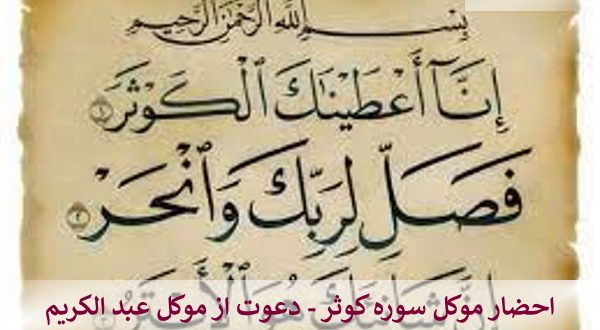 بِسْمِ اللَّهِ الرَّحْمَٰنِ الرَّحِيمِ
إِنَّآ أَعْطَيْنَٰكَ ٱلْكَوْثَرَ ١
فَصَلِّ لِرَبِّكَ وَٱنْحَرْ ٢
إِنَّ شَانِئَكَ هُوَ ٱلْأَبْتَرُ
احضار موکل سوره کوثر - دعوت از موکل عبد الکریم